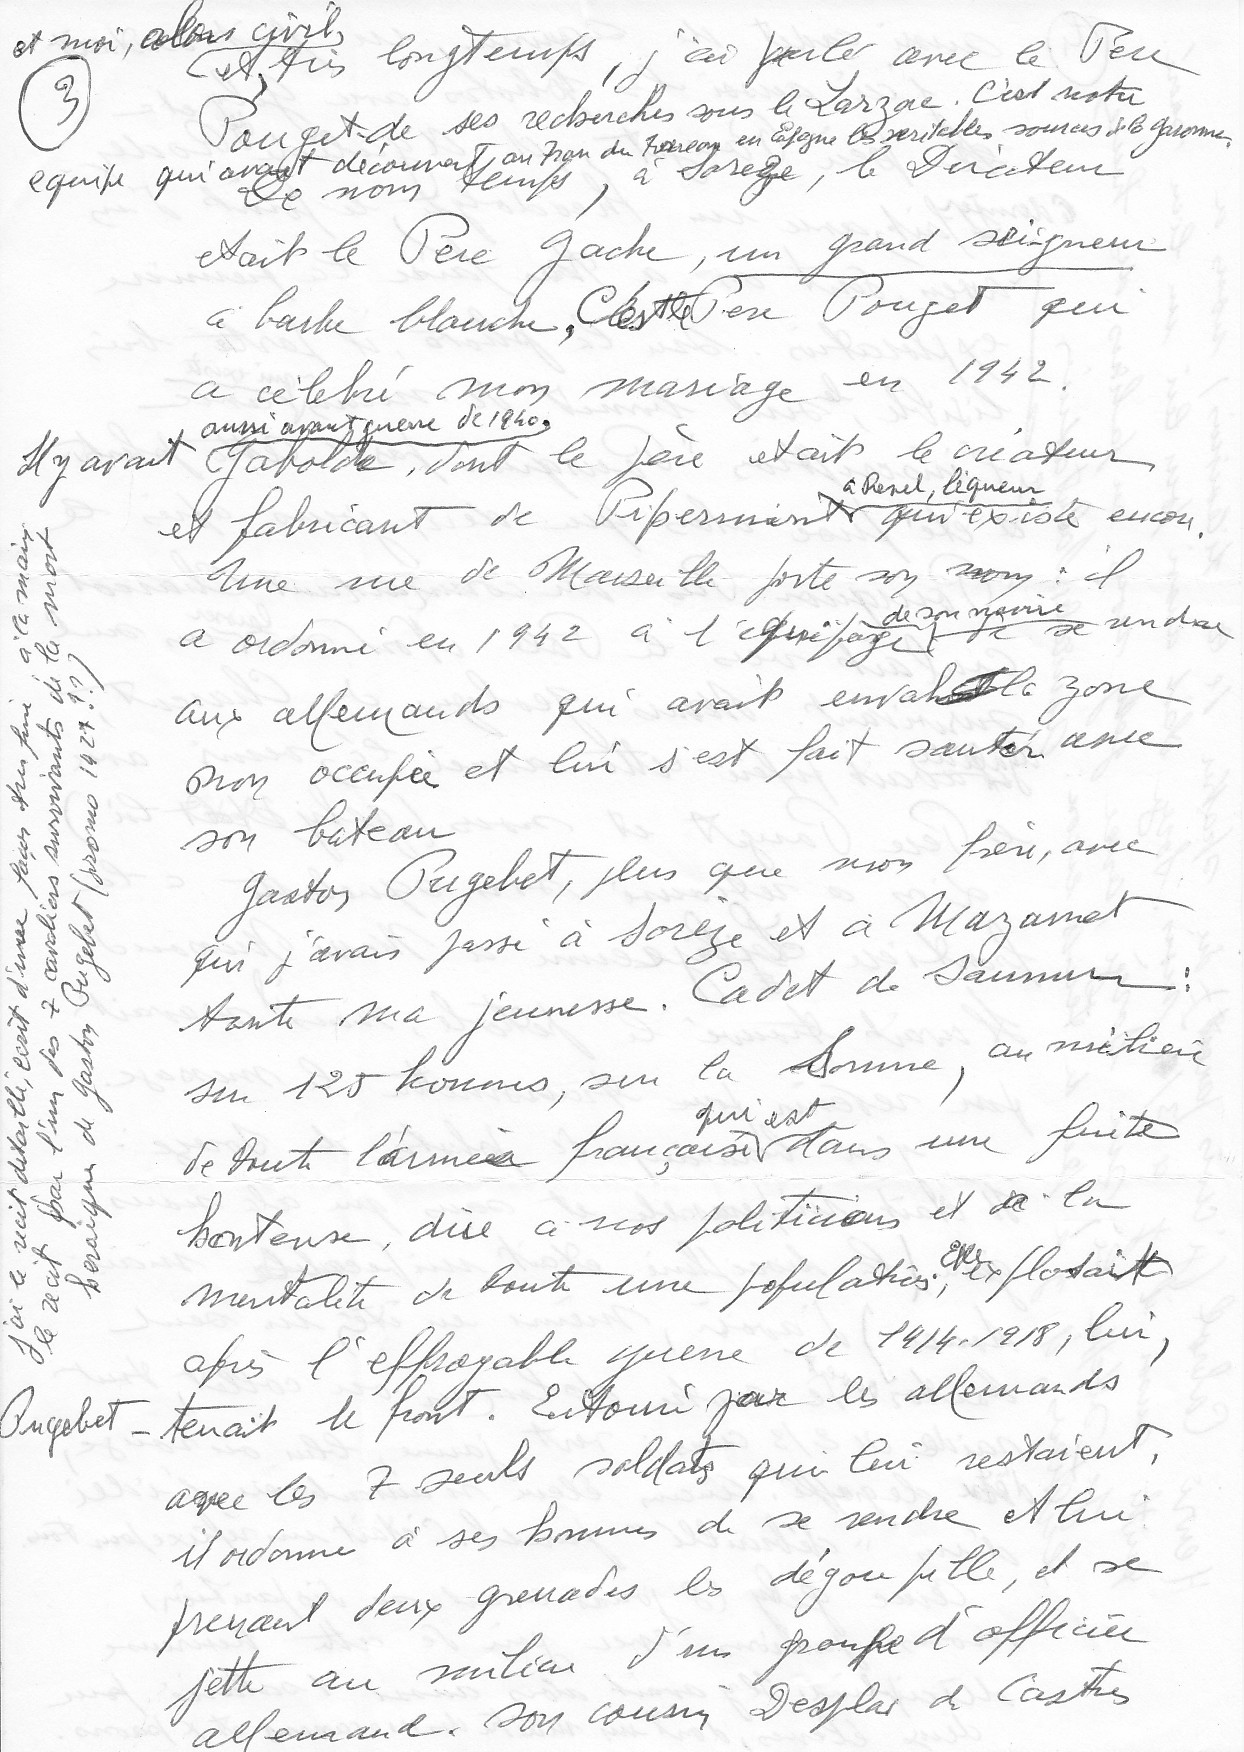 et moi, alors civil,
et, très longtemps, j'ai parlé avec le Père
3
Pouget de ses recherches sous le Larzac. C'est notre
equipe qui avait découvert, au Trou du Toreau en Espagne les veritables sources de la Garonne.
De nom temps, à Soreze, le Directeur
etait le Père Gache, un grand seigneur
à barbe blanche, C'est le Pere Pouget qui
a célébré mon mariage en 1942.
aussi avant guerre de 1940.
Il y avait Gabolde, dont le père etait le créateur
à Revel, liqueur
et fabricant de Pipermint qui existe encore.
Une rue de Marseille porte son nom : il
de son navire
a ordonné en 1942 à l'équipage de se rendre
aux allemands qui avait envahi la zone
non occupée et lui s'est fait sauter avec
son bateau
Gaston Pugebet, plus que mon frère, avec
qui j'avais passé à Sorèze et à Mazamet
toute ma jeunesse. Cadet de Saumur :
sur 125 hommes, sur la Somme, au milieu
qui est
de toute l'armée française dans une fuite
honteuse, due à nos politiciens et à la
mentalité de toute une population,
après l'effroyable guerre de 1914-1918, lui,
Pugebet - tenait le front. Entouré par les allemands
avec les 7 seuls soldats qui lui restaient,
il ordonne à ses hommes de se rendre et lui
prenant deux grenades les dégoupille, et se
jette au milieu d'un groupe d'officier
allemand. Son cousin Desplas de Castres
j'ai le recit detaillé, ecrit d'une façon très fine à la main
le recit par l'un des 7 cavaliers survivants de la mort
heroique de Gaston Pugebet (promo 1927 ??)